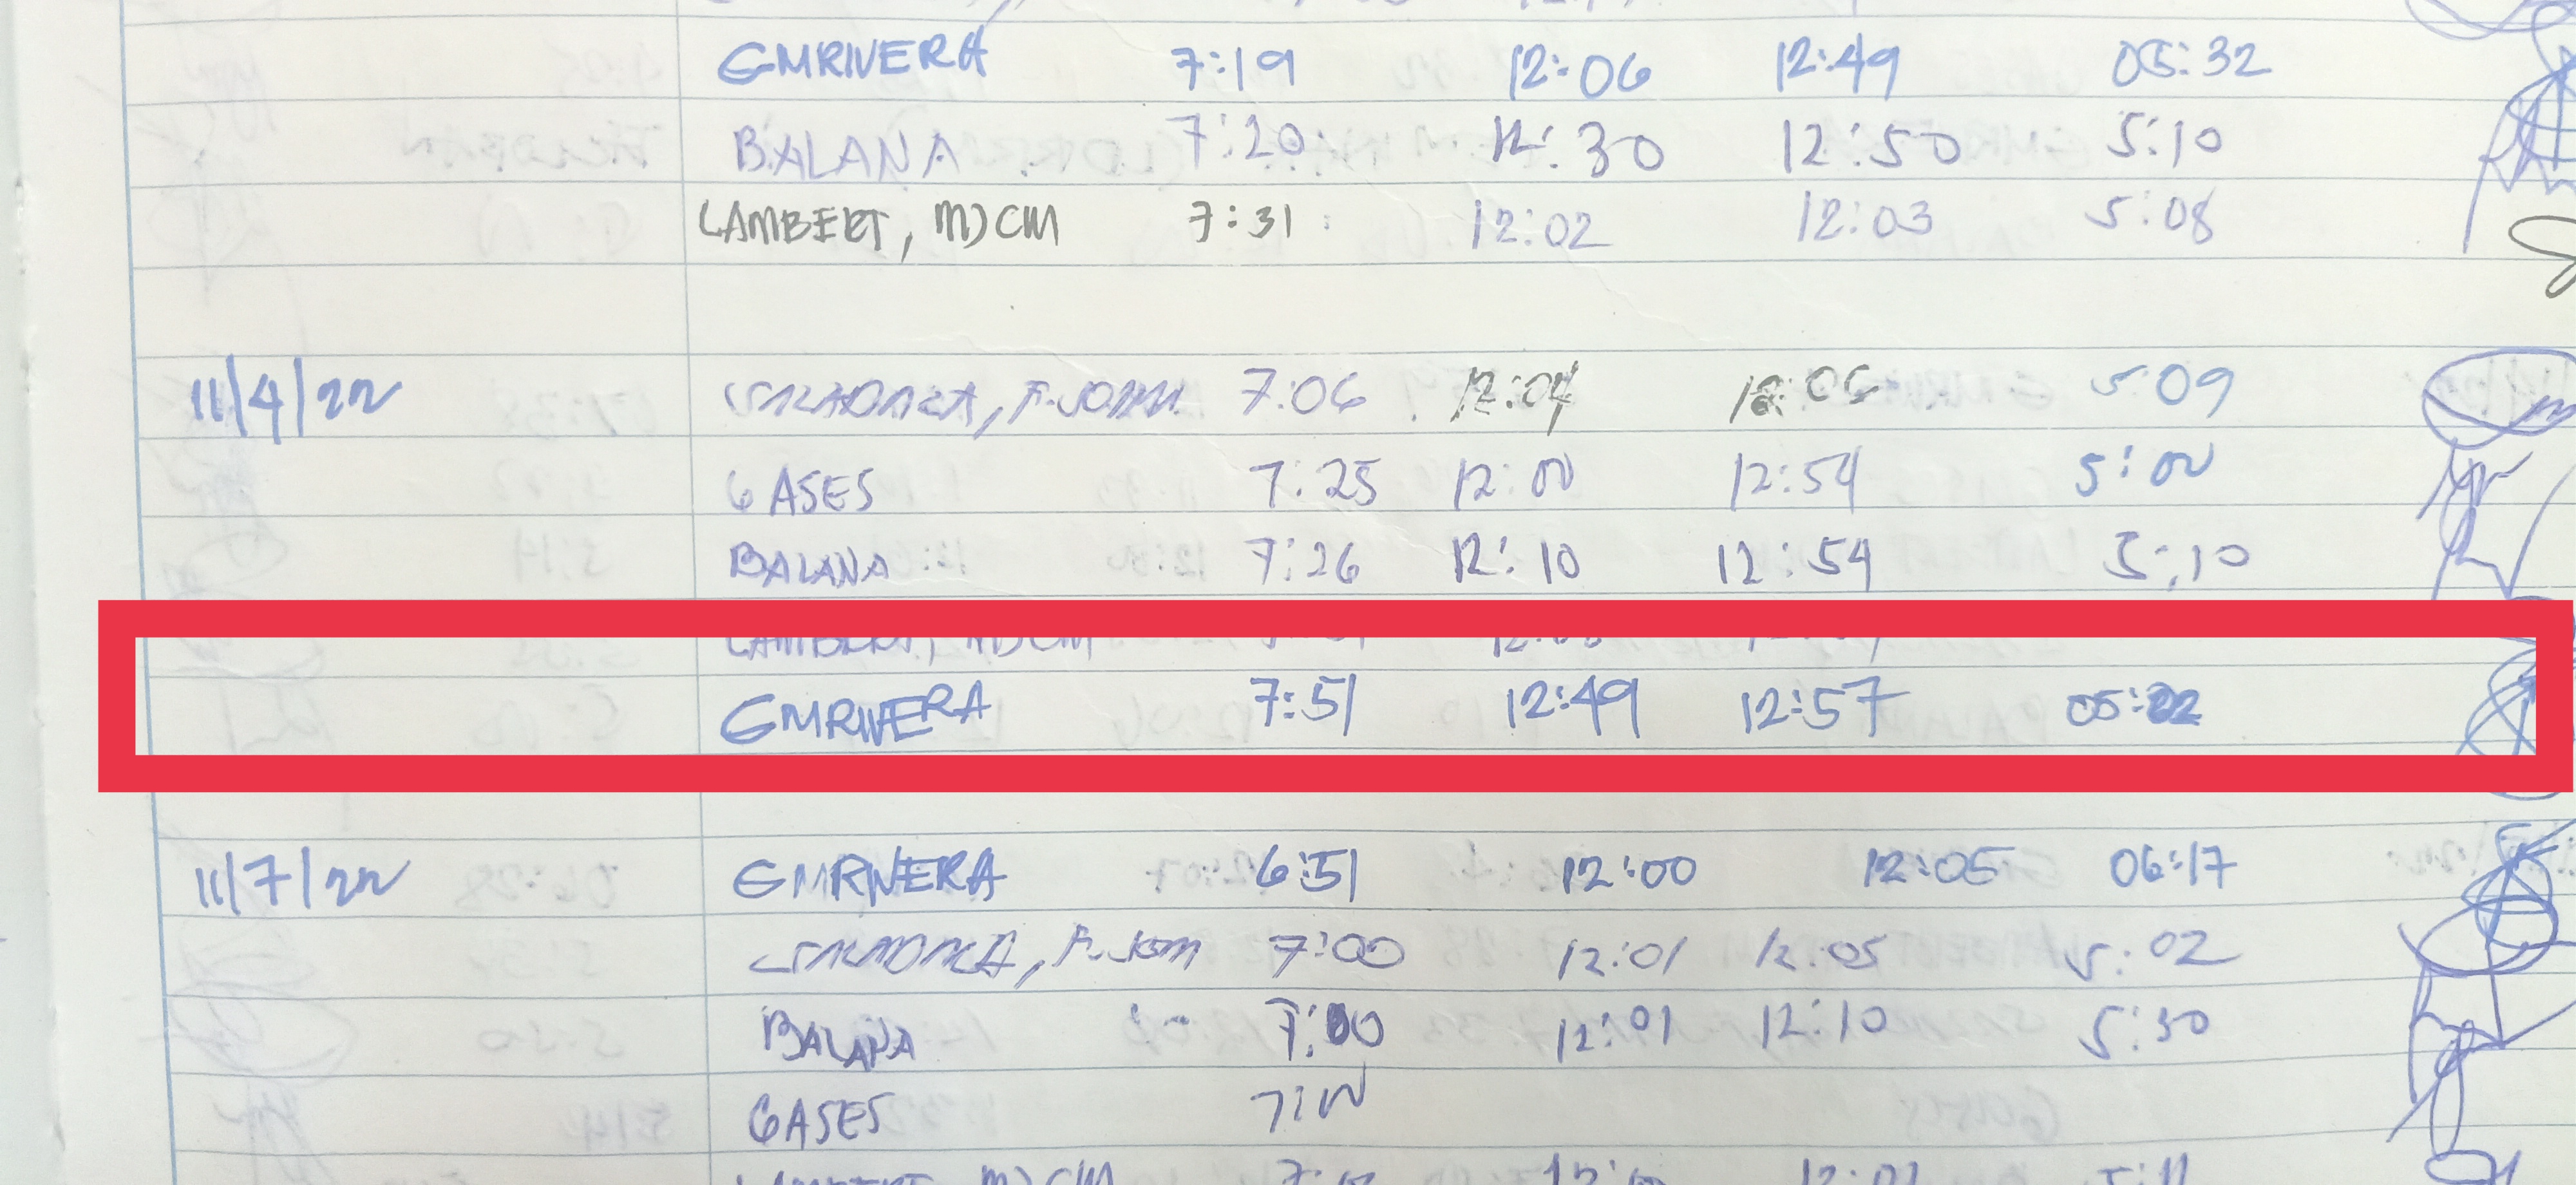 GMRIVERA 7:19 12:06 12:49 05:32
BALANA 7:20 12:30 12:50 5:10
LAMBERT, MJCM 7:31 12:02 12:03 5:08
11/4/22 7:06 12:04 5:09
GASES 7:25 12:00 12:54 5:00
BALANA 7:26 12:10 12:54 5:10
LAMBERT, MJCM
GMRIVERA 7:51 12:49 12:57 05:22
11/7/22 GMRIVERA 6:51 12:00 12:05 06:17
7:00 12:01 12:05 5:02
BALANA 7:00 12:01 12:10 5:30
GASES
LAMBERT, MJCM 12:01 5:11